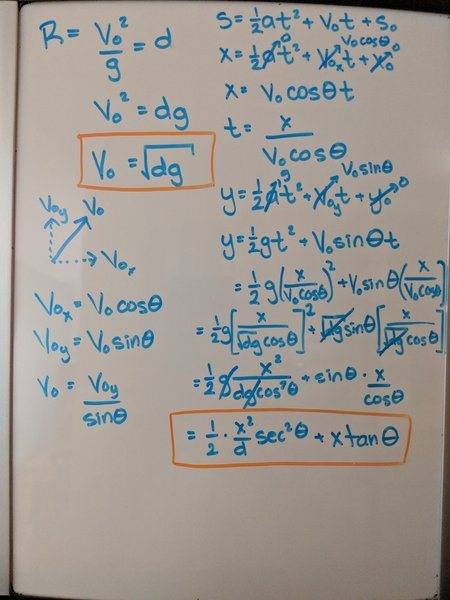 R = V₀²/g = d
V₀² = dg
V₀ = √dg
V₀y V₀
V₀ₓ
V₀ₓ = V₀cosθ
V₀y = V₀sinθ
V₀ = V₀y/sinθ
S = ½at² + V₀t + S₀
V₀cosθ
x = ½a⁰t² + V₀ₓt + x₀⁰
x = V₀cosθt
t = x/V₀cosθ
g V₀sinθ
y = ½at² + V₀yt + y₀⁰
y = ½gt² + V₀sinθt
= ½g(x/V₀cosθ)² + V₀sinθ(x/V₀cosθ)
= ½g[x/√dg cosθ]² + √dg sinθ[x/√dg cosθ]
= ½g x²/dgcos²θ + sinθ · x/cosθ
= ½ · x²/d sec²θ + xtanθ